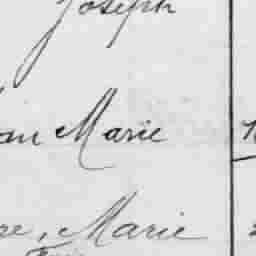 Joseph
an Marie
re, Marie